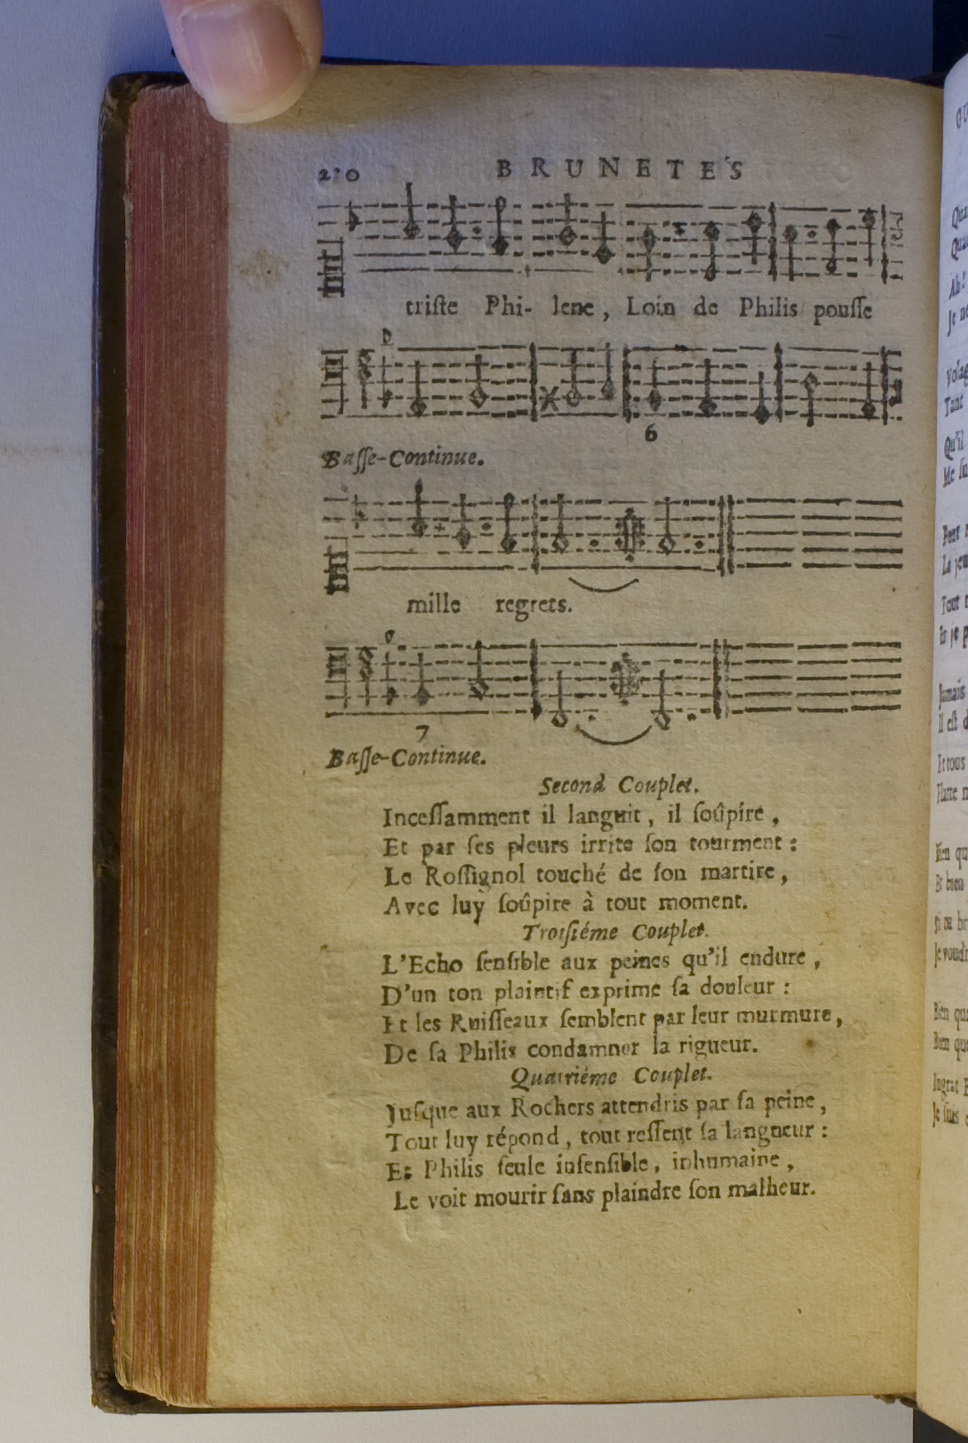 2?0 BRUNETES
triſte Phi- lene, Loin de Philis pouſſe
6
Baſſe-Continue.
mille regrets.
7
Baſſe-Continue.
Second Couplet.
Inceſſamment il languit, il ſoûpire,
Et par ſes pleurs irrite ſon tourment :
Le Roſſignol touché de ſon martire,
Avec luy ſoûpire à tout moment.
Troiſiéme Couplet.
L'Echo ſenſible aux peines qu'il endure,
D'un ton plaintif exprime ſa douleur :
Et les Ruiſſeaux ſemblent par leur murmure,
De ſa Philis condamner la rigueur.
Quatriéme Couplet.
Juſque aux Rochers attendris par ſa peine,
Tout luy répond, tout reſſent ſa langueur :
Et Philis ſeule inſenſible, inhumaine,
Le voit mourir ſans plaindre ſon malheur.